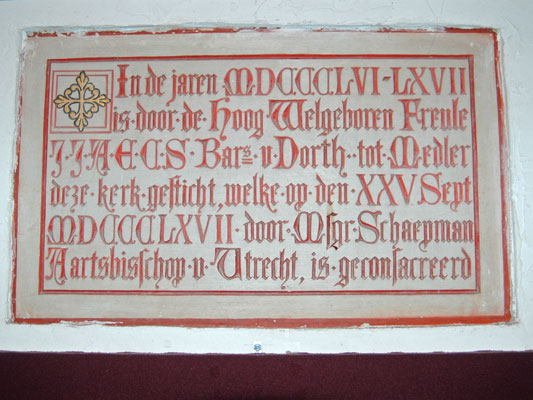 In de jaren MDCCCLVI-LXVII
is·door·de·Hoog·Welgeboren Freule
J·J·A·E·C·S·Barᵉˢ·v·Dorth··tot·Medler
deze·kerk·gesticht, welke·op·den·XXV.Sept
MDCCCLXVII·door·Msgr·Schaepman
Aartsbisschop·v·Utrecht, is·geconsacreerd